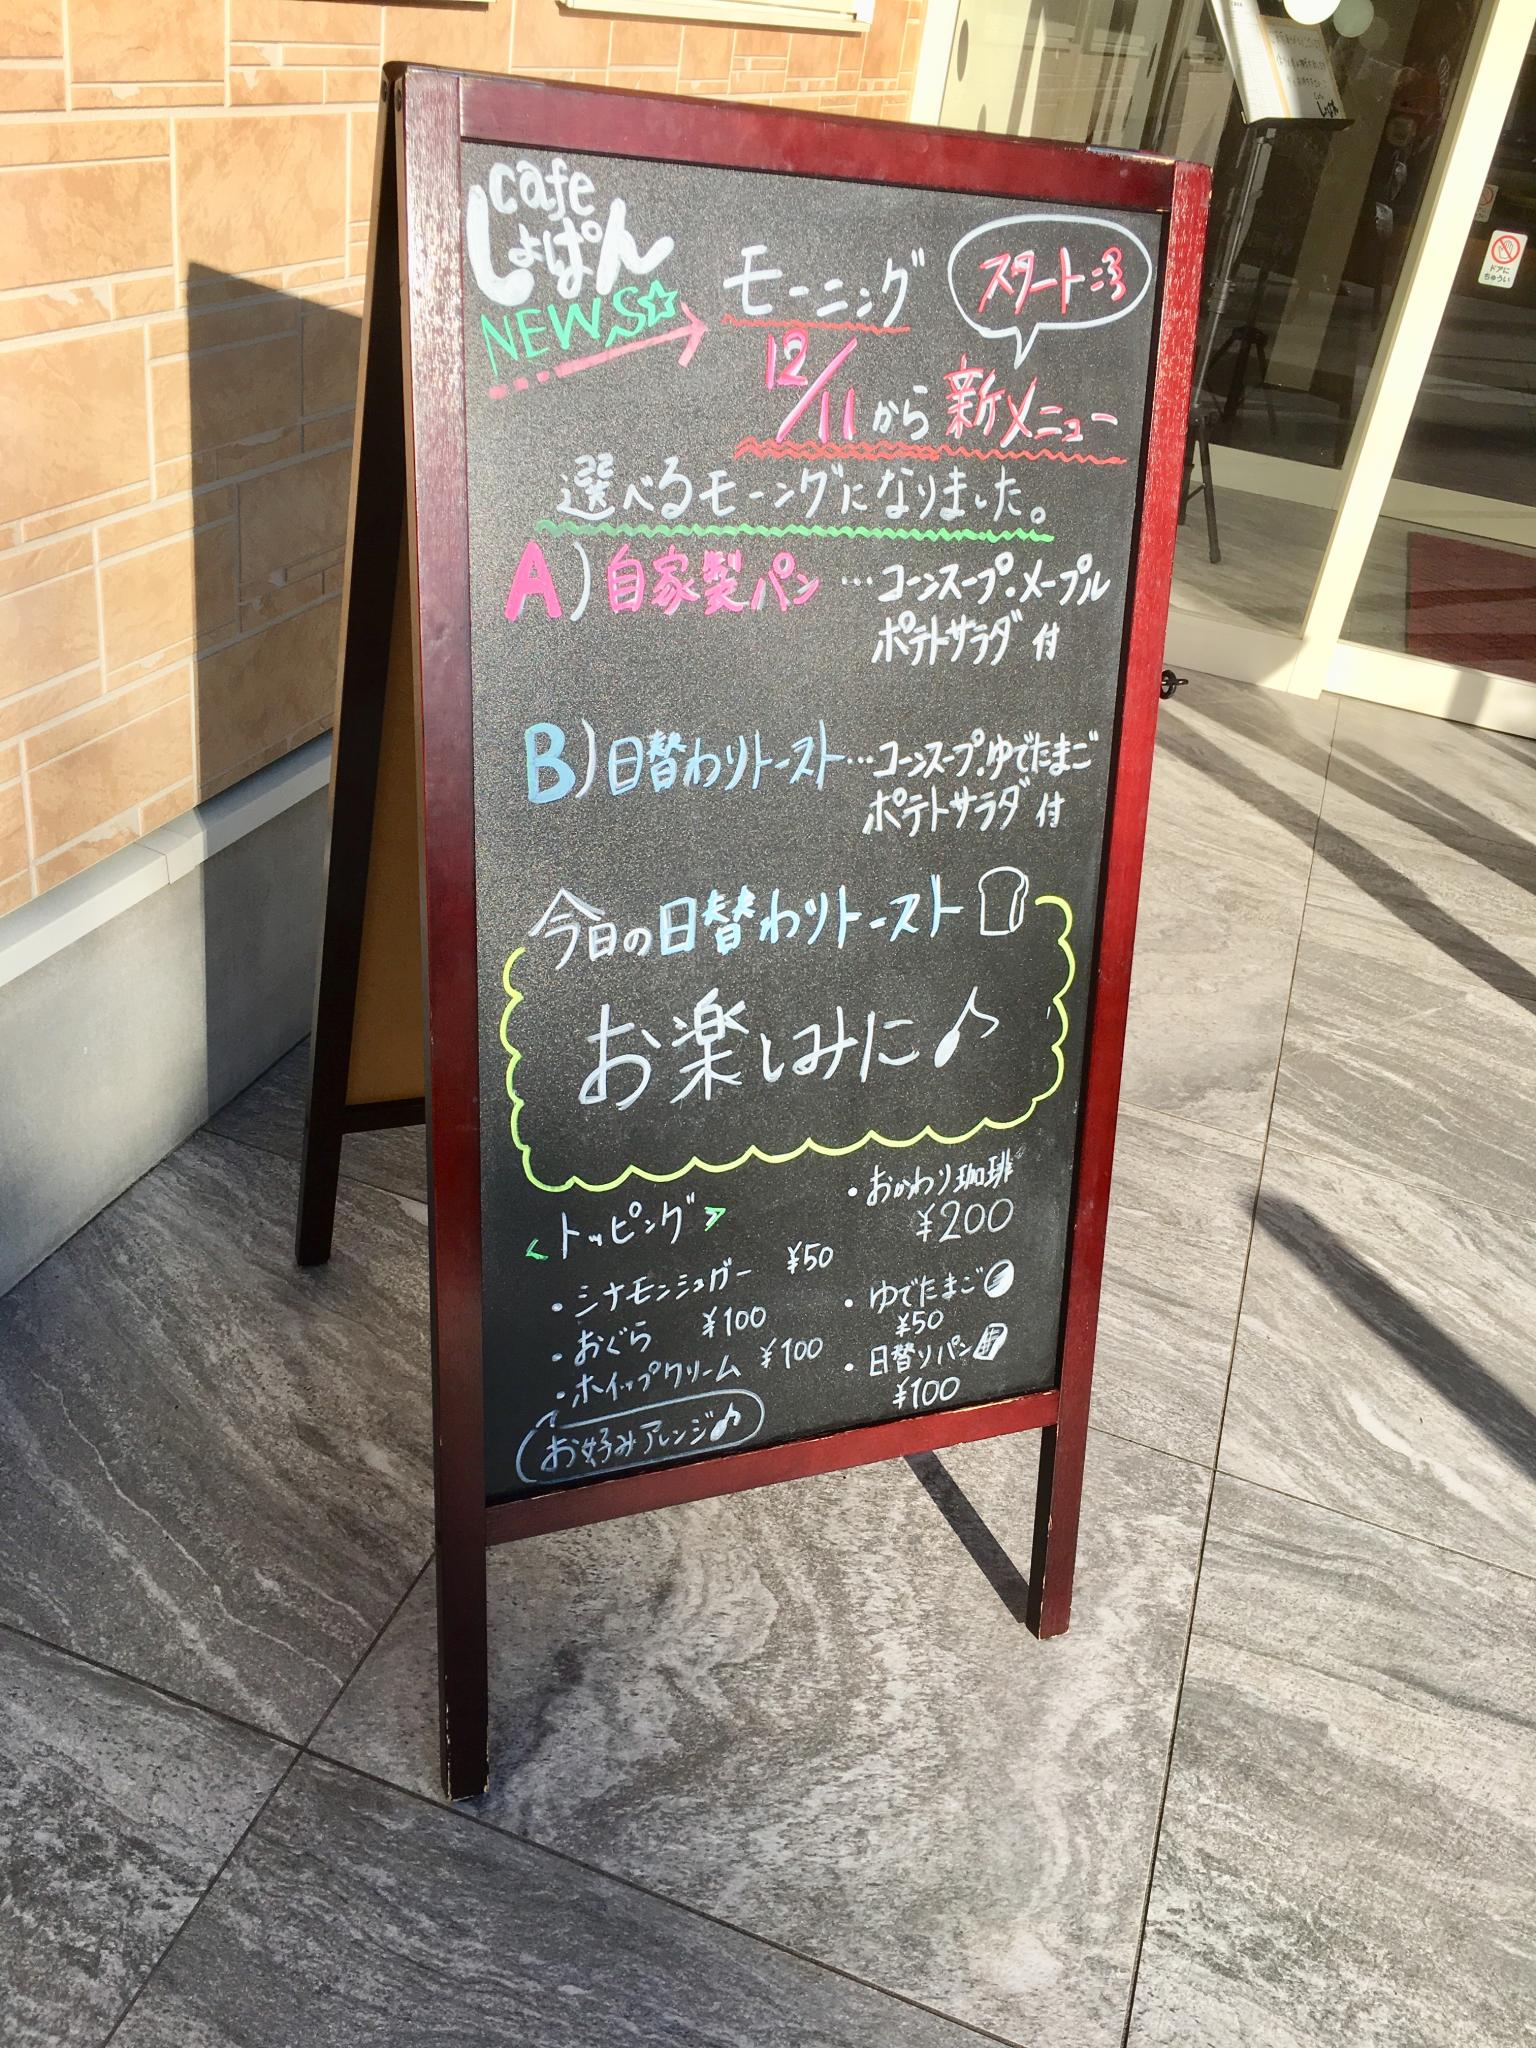 cafe
しょぱん
NEWS☆
モーニング
スタート
12/11から新メニュー
選べるモーングになりました。
A)自家製パン…コーンスープ・メープル
ポテトサラダ付
B)日替わりトースト…コーンスープ・ゆでたまご
ポテトサラダ付
今日の日替わりトースト
お楽しみに♪
<トッピング>
・シナモンシュガー ¥50
・おぐら ¥100
・ホイップクリーム ¥100
お好みアレンジ♪
・おかわり珈琲
¥200
・ゆでたまご
¥50
・日替りパン
¥100
ドアに
ちゅうい